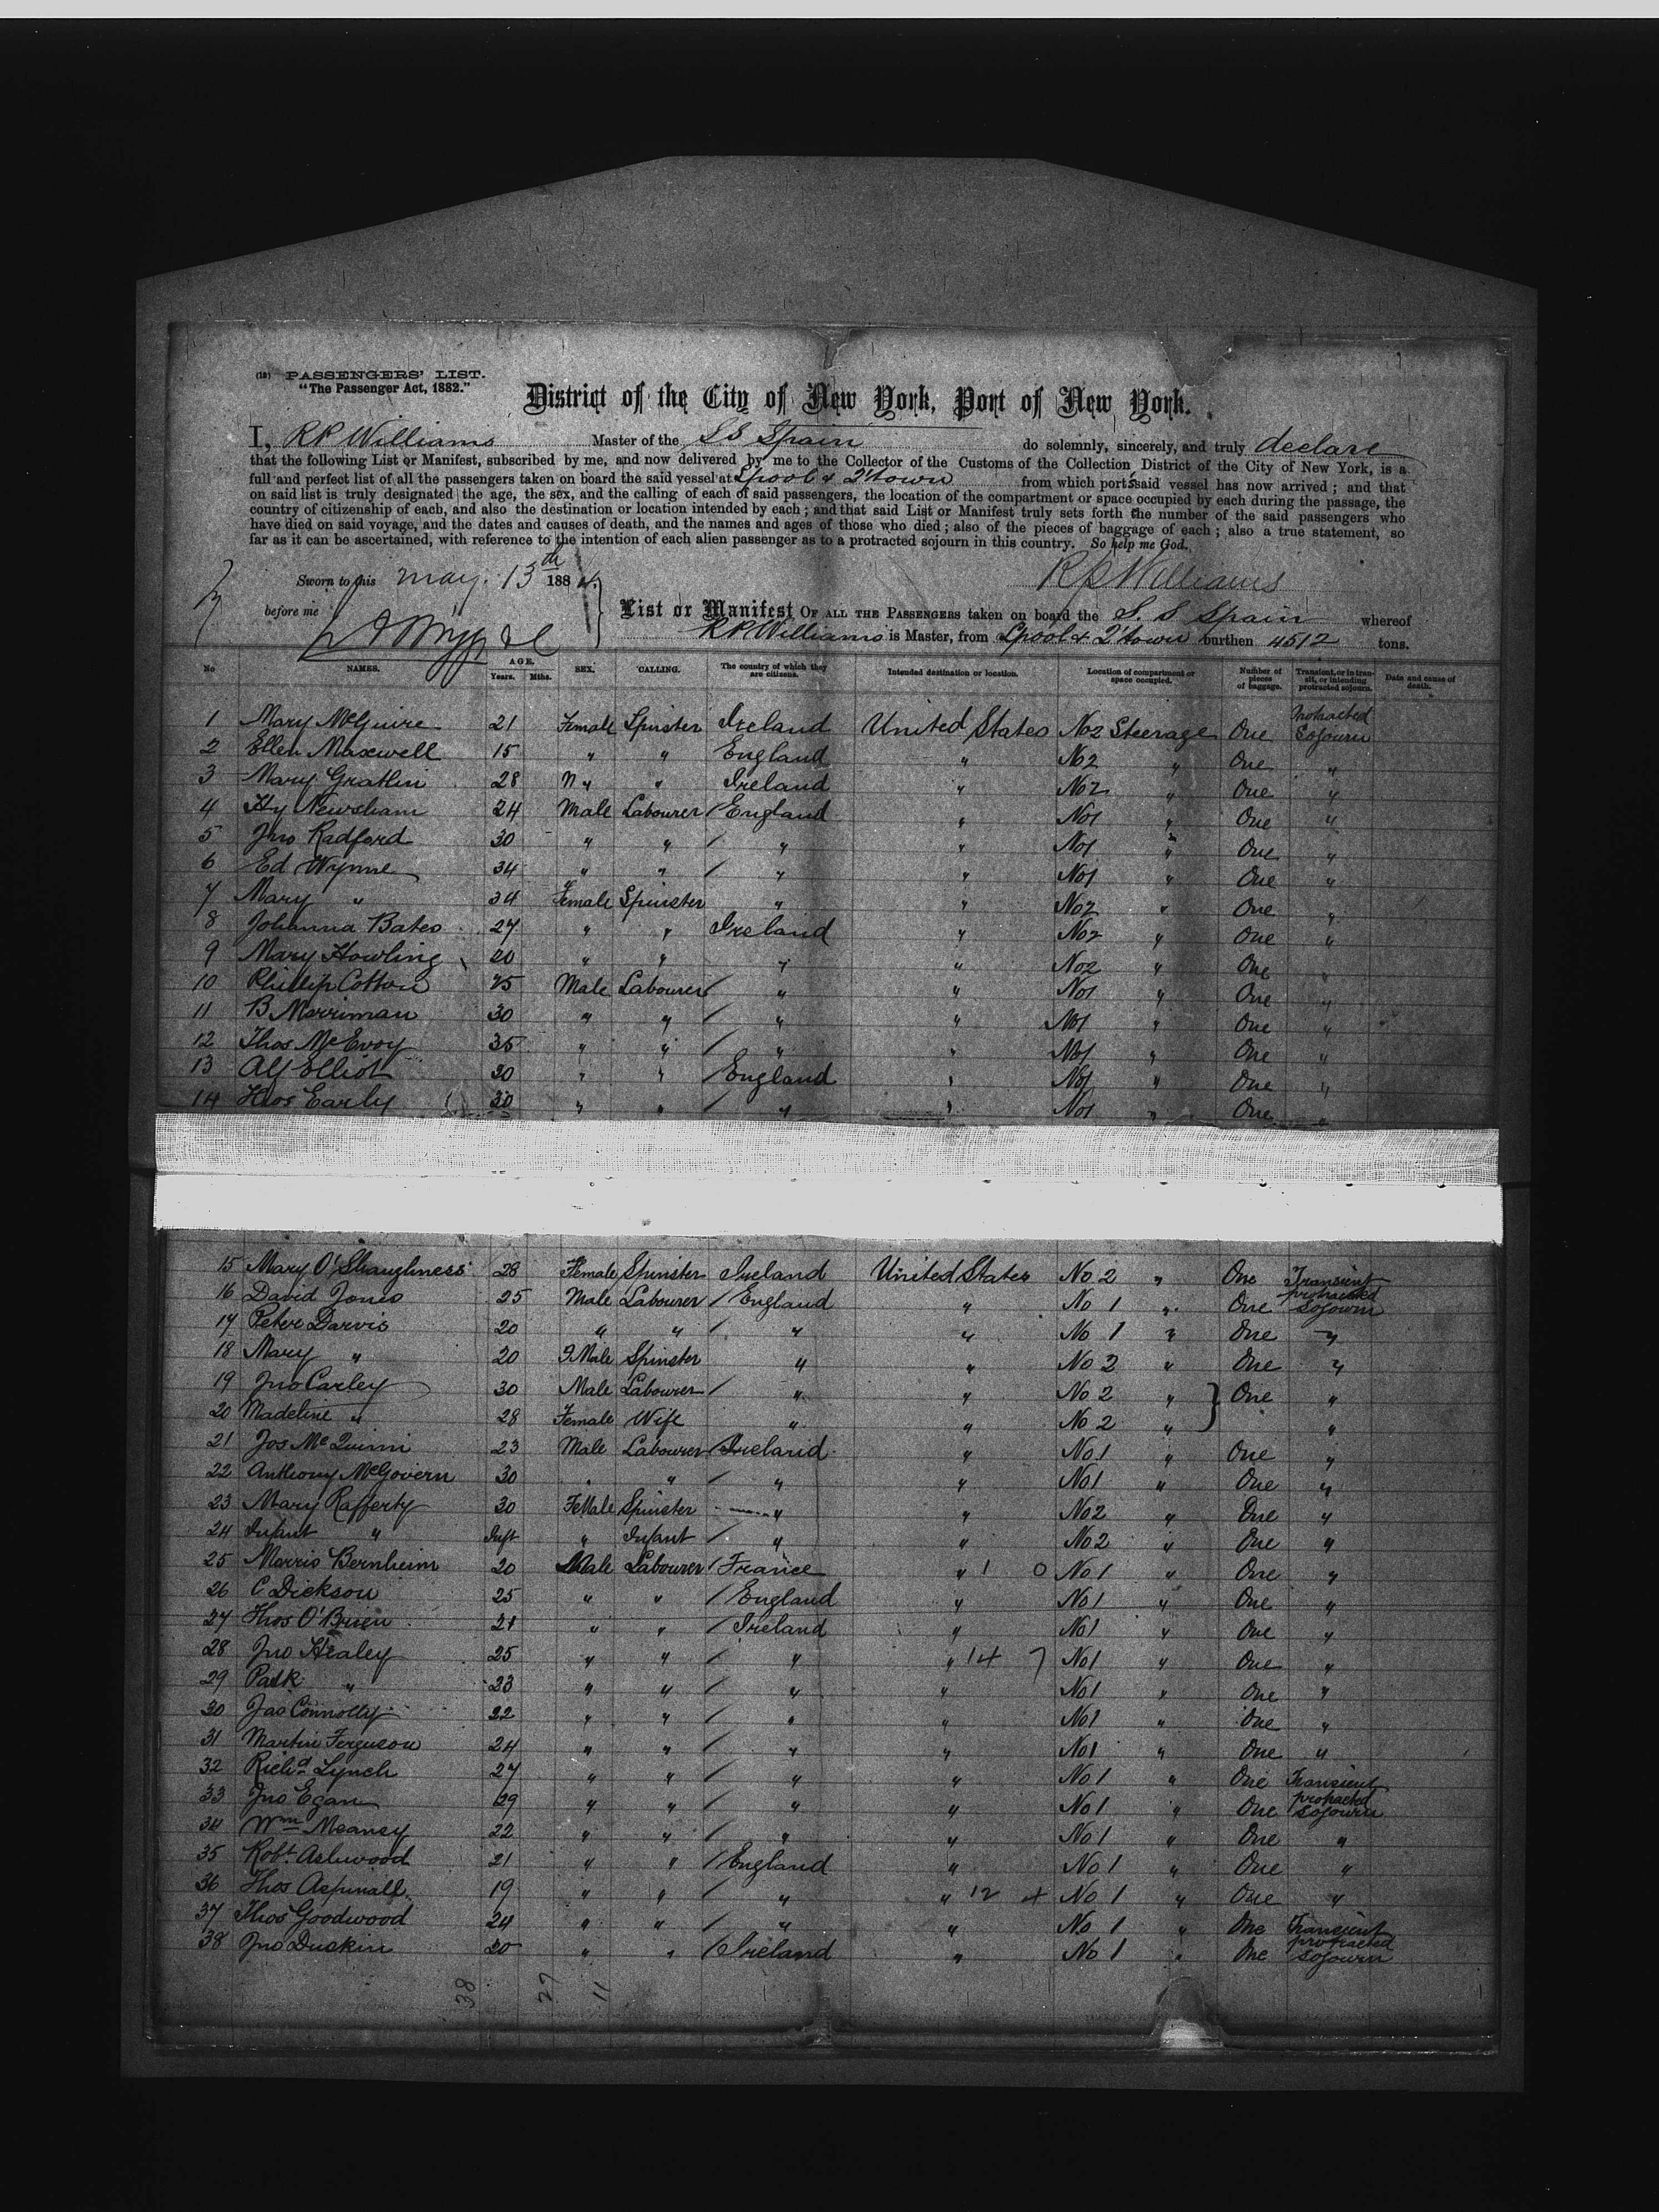 (12) PASSENGERS' LIST.
"The Passenger Act, 1882."
District of the City of New York, Port of New York.
I, R P Williams Master of the S S Spain do solemnly, sincerely, and truly declare
that the following List or Manifest, subscribed by me, and now delivered by me to the Collector of the Customs of the Collection District of the City of New York, is a
full and perfect list of all the passengers taken on board the said vessel at Lpool & Q'town from which ports said vessel has now arrived; and that
on said list is truly designated the age, the sex, and the calling of each of said passengers, the location of the compartment or space occupied by each during the passage, the
country of citizenship of each, and also the destination or location intended by each; and that said List or Manifest truly sets forth the number of the said passengers who
have died on said voyage, and the dates and causes of death, and the names and ages of those who died; also of the pieces of baggage of each; also a true statement, so
far as it can be ascertained, with reference to the intention of each alien passenger as to a protracted sojourn in this country. So help me God.
Sworn to this may. 13th 1884. R P Williams
before me
List or Manifest OF ALL THE PASSENGERS taken on board the S. S Spain whereof
R P Williams is Master, from Lpool & Q'town burthen 4512 tons.
No NAMES. AGE. Years. Mths. SEX. CALLING. The country of which they are citizens. Intended destination or location. Location of compartment or space occupied. Number of pieces of baggage. Transient, or in transit, or intending protracted sojourn. Date and cause of death.
1 Mary McGuire 21 Female Spinster Ireland United States No2 Steerage One Protracted Sojourn
2 Ellen Maxwell 15 " " England " No2 " One "
3 Mary Gratlin 28 " " Ireland " No2 " One "
4 Hy Newsham 24 Male Labourer / England " No1 " One "
5 Jno Radford 30 " " / " " No1 " One "
6 Ed Wynne 34 " " / " " No1 " One "
7 Mary " 34 Female Spinster " " No2 " One "
8 Johanna Bates 27 " " Ireland " No2 " One "
9 Mary Howling 20 " " " " No2 " One "
10 Phillip Cotton 25 Male Labourer / " " No1 " One "
11 B Merriman 30 " " / " " No1 " One "
12 Thos McEvoy 35 " " / " " No1 " One "
13 Alf Elliott 30 " " / England " No1 " One "
14 Thos Early 30 " " / " " No1 " One "
15 Mary O'Shaughness 28 Female Spinster Ireland United States No. 2 " One Transient
16 David Jones 25 Male Labourer / England " No 1 " One protracted Sojourn
17 Peter Darvis 20 " " / " " No 1 " One "
18 Mary " 20 FMale Spinster " " No 2 " One "
19 Jno Carley 30 Male Labourer / " " No 2 " } One "
20 Madeline " 28 Female Wife " " No 2 " "
21 Jos McQuinn 23 Male Labourer / Ireland " No.1 " One "
22 Anthony McGovern 30 " " / " " No1 " One "
23 Mary Rafferty 30 FeMale Spinster " " No2 " One "
24 Infant " Inft " Infant / " " No2 " One "
25 Morris Bernheim 20 Male Labourer / France " 1 0 No 1 " One "
26 C Dickson 25 " " / England " No1 " One "
27 Thos O'Brien 21 " " / Ireland " No1 " One "
28 Jno Healey 25 " " / " " 14 7 No1 " One "
29 Patk " 23 " " / " " No1 " One "
30 Jas Connolly 22 " " / " " No1 " One "
31 Martin Ferguson 24 " " / " " No1 " One "
32 Richd Lynch 27 " " / " " No 1 " One Transient
33 Jno Egan 29 " " / " " No 1 " One protracted Sojourn
34 Wm Meaney 22 " " / " " No 1 " One "
35 Robt Ashwood 21 " " / England " No 1 " One "
36 Thos Aspinall 19 " " / " " 12 4 No 1 " One "
37 Thos Goodwood 24 " " / " " No 1 " One Transient
38 Jno Duskin 20 " " / Ireland " No 1 " One protracted Sojourn
38 27 11